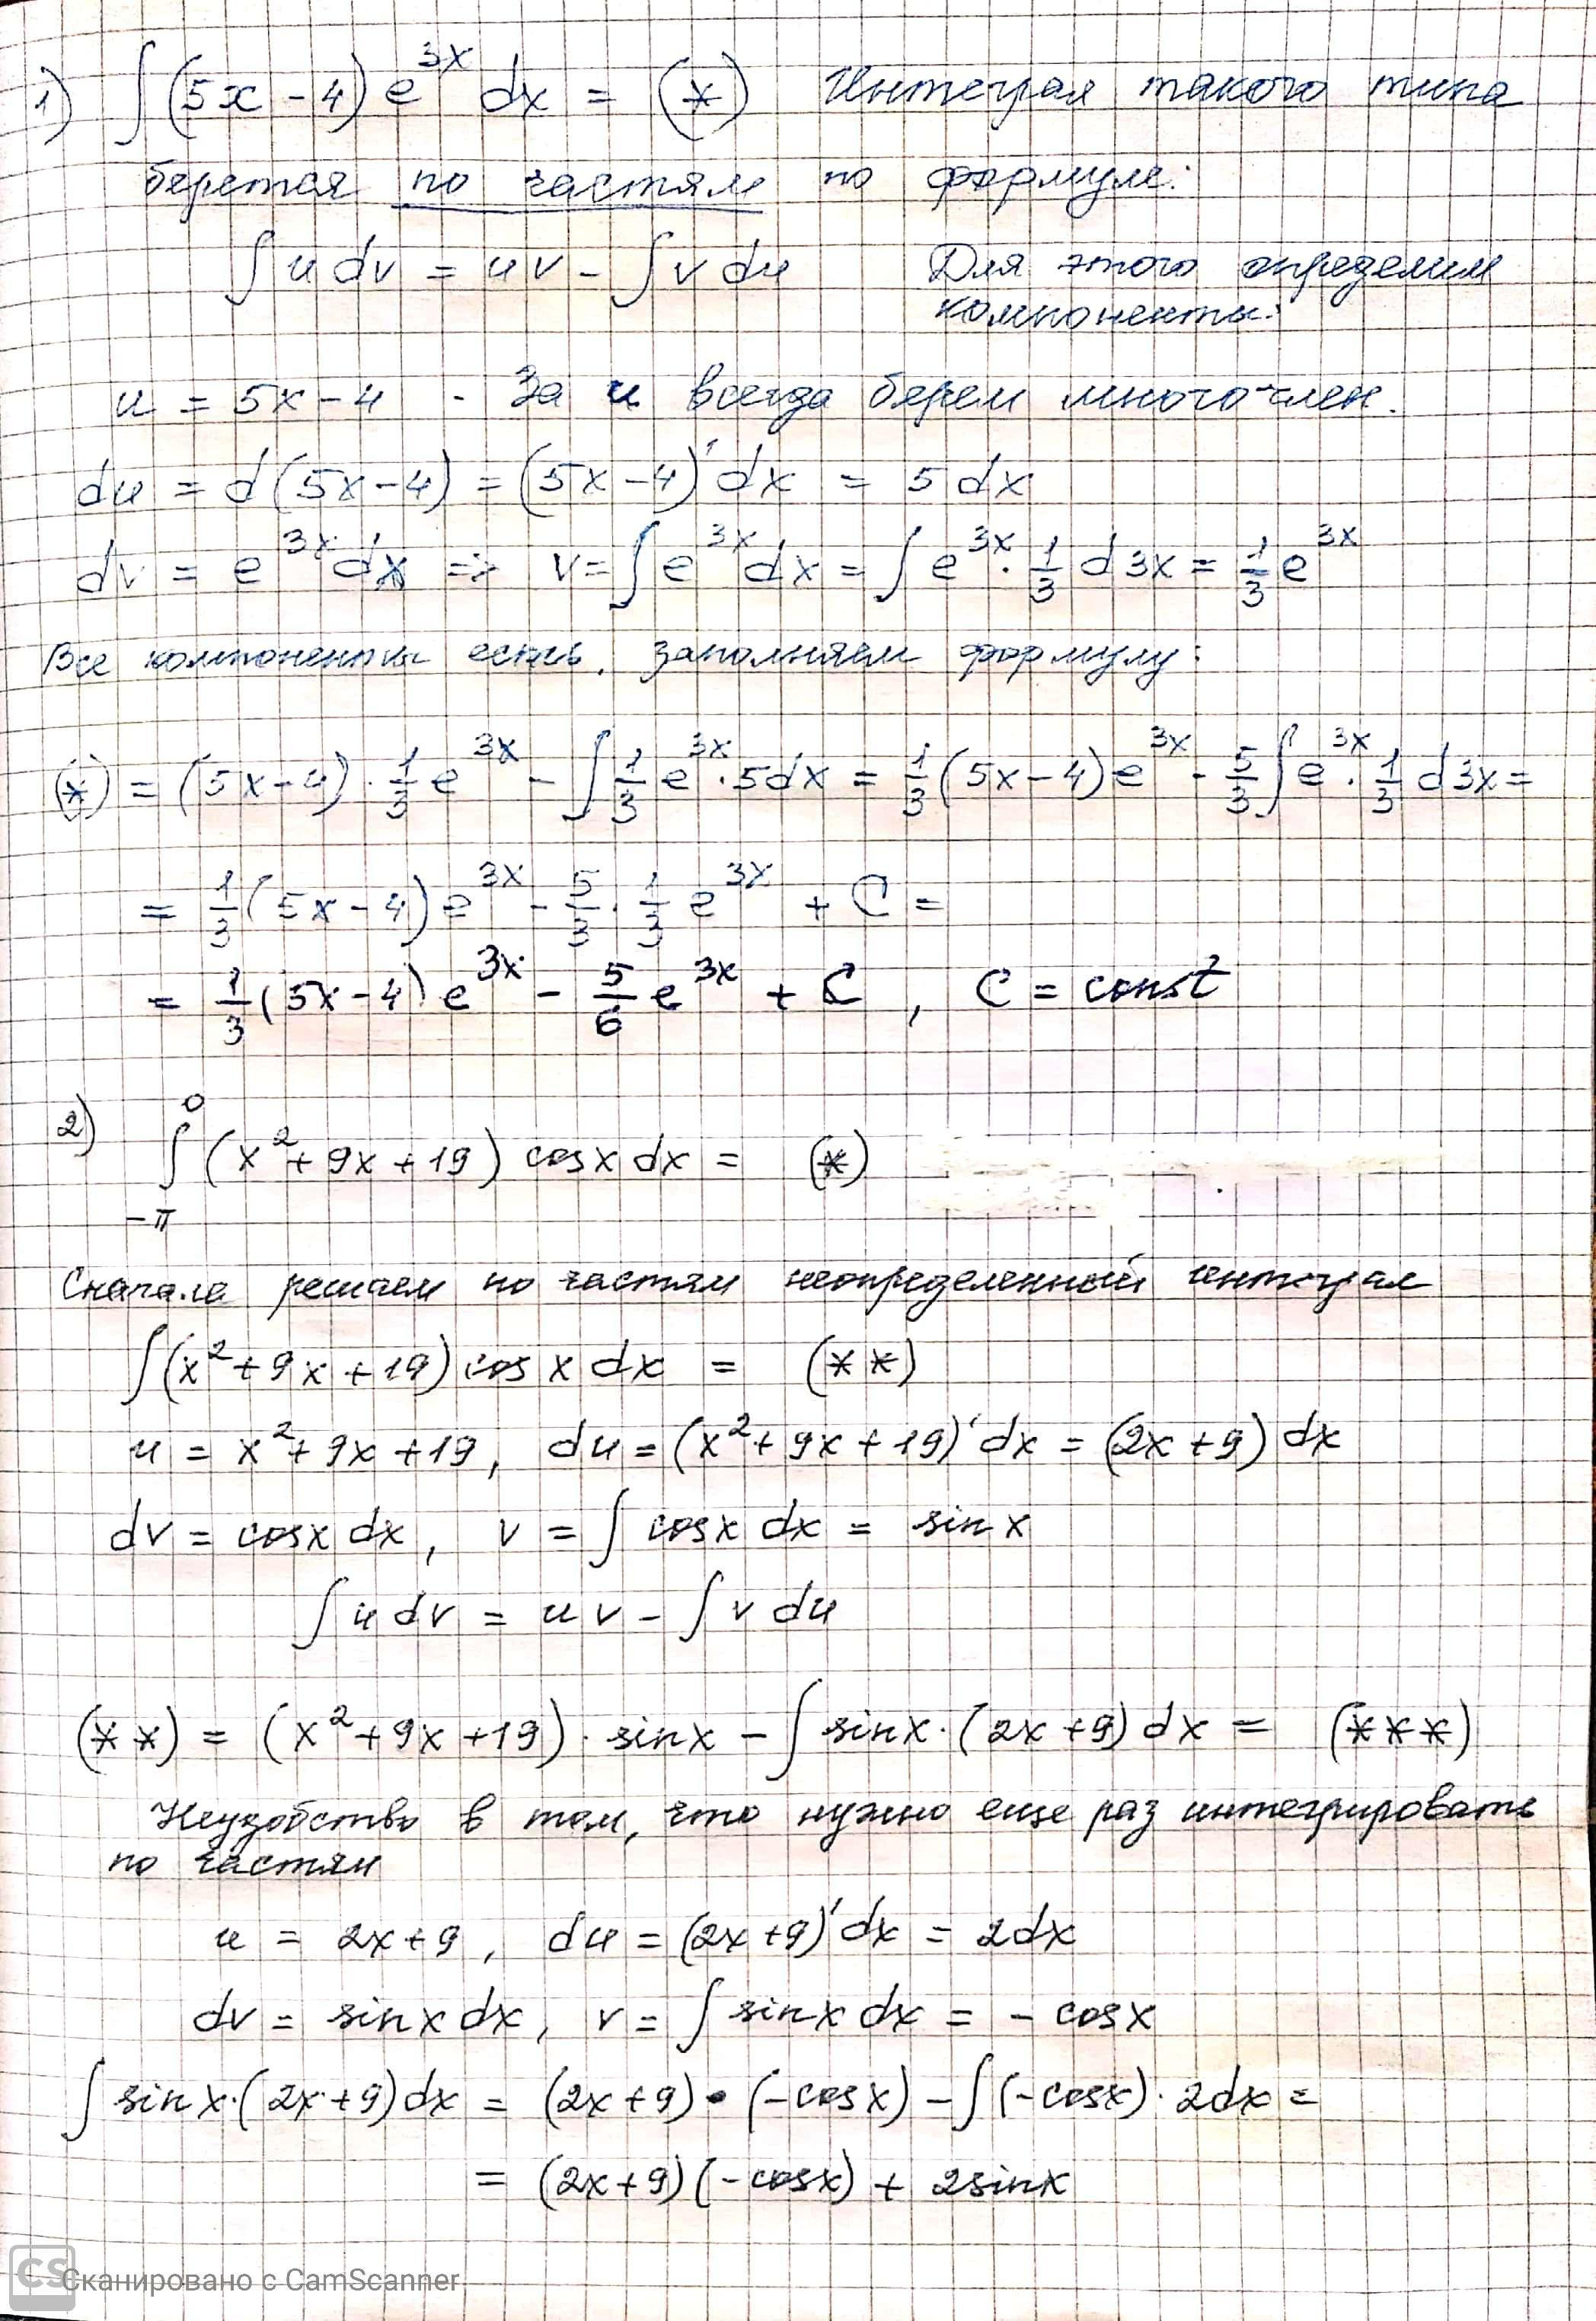 1) ∫(5x-4)e^{3x} dx = (*) Интеграл такого типа
берется по частям по формуле:
∫u dv = uv - ∫v du Для этого определим
компоненты:
u = 5x-4 - За u всегда берем многочлен.
du = d(5x-4) = (5x-4)' dx = 5dx
dv = e^{3x} dx => v = ∫e^{3x} dx = ∫e^{3x} · 1/3 d3x = 1/3 e^{3x}
Все компоненты есть, заполняем формулу:
(*) = (5x-4) · 1/3 e^{3x} - ∫ 1/3 e^{3x} · 5dx = 1/3 (5x-4)e^{3x} - 5/3 ∫e^{3x} · 1/3 d3x =
= 1/3 (5x-4)e^{3x} - 5/3 · 1/3 e^{3x} + C =
= 1/3 (5x-4)e^{3x} - 5/6 e^{3x} + C , C = const
2) ∫_{-π}^{0} (x²+9x+19) cosx dx = (*)
Сначала решаем по частям неопределенный интеграл
∫(x²+9x+19) cos x dx = (**)
u = x²+9x+19, du = (x²+9x+19)' dx = (2x+9) dx
dv = cosx dx, v = ∫cosx dx = sin x
∫u dv = uv - ∫v du
(**) = (x²+9x+19) · sinx - ∫sinx · (2x+9) dx = (***)
Неудобство в том, что нужно еще раз интегрировать
по частям
u = 2x+9, du = (2x+9)' dx = 2dx
dv = sinx dx, v = ∫sinx dx = - cosx
∫sinx·(2x+9)dx = (2x+9)·(-cosx) - ∫(-cosx)·2dx =
= (2x+9)(-cosx) + 2sinx
CS Сканировано с CamScanner